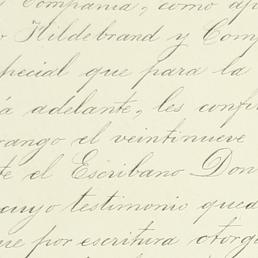 Compania, como ap
Hildebrand y Com
special que para la
a adelante, les confi
rango el veintinueve
te el Escribano Don
cuyo testimonio qued
ue por escritura otorg